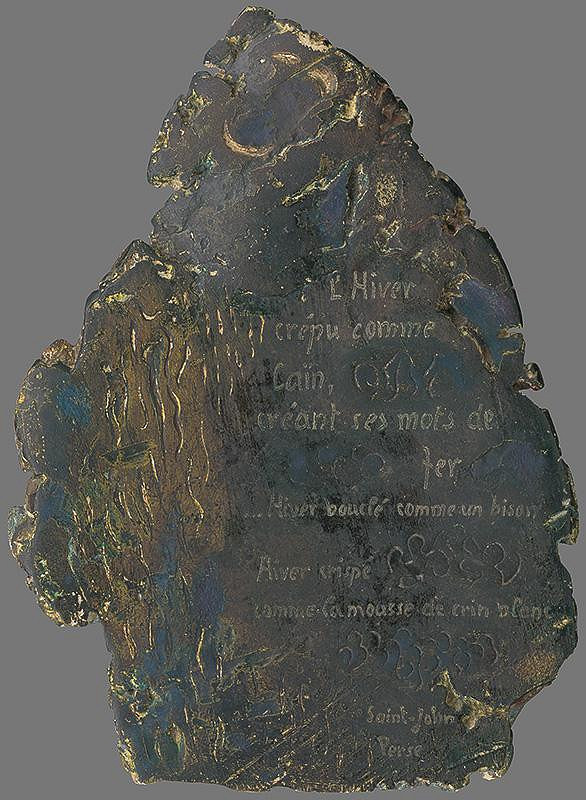 L'Hiver
crépu comme
Caïn,
créant ses mots de
fer
... Hiver bouclé comme un bison
Hiver crispé
comme la mousse de crin blanc
Saint-John
Perse